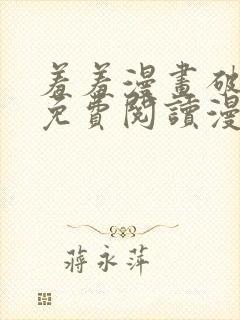 羞羞漫畫破
免費閱讀漫
蔣永萍